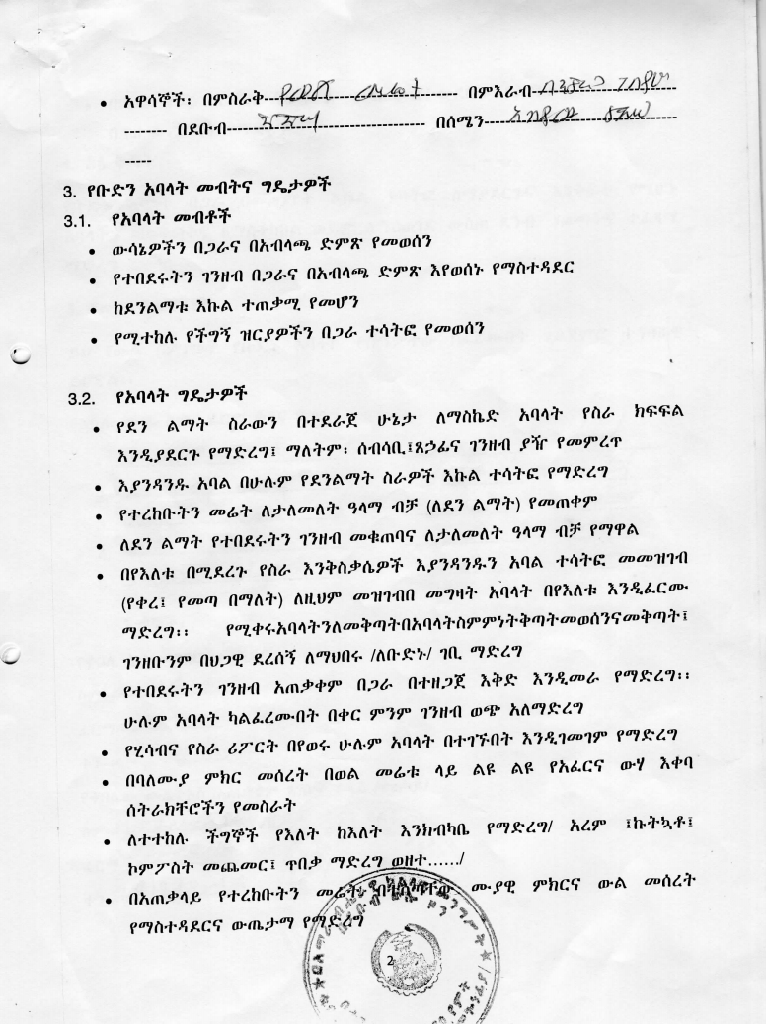 • አዋሳኞች፡ በምስራቅ-------------------------------- በምእራብ-----------------------
-------- በደቡብ--------------------------------- በሰሜን--------------------------------
-----
3. የቡድን አባላት መብትና ግዴታዎች
3.1. የአባላት መብቶች
• ውሳኔዎችን በጋራና በአብላጫ ድምጽ የመወሰን
• የተበደሩትን ገንዘብ በጋራና በአብላጫ ድምጽ እየወሰኑ የማስተዳደር
• ከደንልማቱ እኩል ተጠቃሚ የመሆን
• የሚተከሉ የችግኝ ዝርያዎችን በጋራ ተሳትፎ የመወሰን
3.2. የአባላት ግዴታዎች
• የደን ልማት ስራውን በተደራጀ ሁኔታ ለማስኬድ አባላት የስራ ክፍፍል
እንዲያደርጉ የማድረግ፤ ማለትም፡ ሰብሳቢ፤ጸኃፊና ገንዘብ ያዥ የመምረጥ
• እያንዳንዱ አባል በሁሉም የደንልማት ስራዎች እኩል ተሳትፎ የማድረግ
• የተረከቡትን መሬት ለታለመለት ዓላማ ብቻ (ለደን ልማት) የመጠቀም
• ለደን ልማት የተበደሩትን ገንዘብ መቁጠባና ለታለመለት ዓላማ ብቻ የማዋል
• በየእለቱ በሚደረጉ የስራ እንቅስቃሴዎች እያንዳንዱን አባል ተሳትፎ መመዝገብ
(የቀረ፤ የመጣ በማለት) ለዚህም መዝገብበ መግዛት አባላት በየእለቱ እንዲፈርሙ
ማድረግ፡፡ የሚቀሩአባላትንለመቅጣትበአባላትስምምነትቅጣትመወሰንናመቅጣት፤
ገንዘቡንም በህጋዊ ደረሰኝ ለማህበሩ /ለቡድኑ/ ገቢ ማድረግ
• የተበደሩትን ገንዘብ አጠቃቀም በጋራ በተዘጋጀ እቅድ እንዲመራ የማድረግ፡፡
ሁሉም አባላት ካልፈረሙበት በቀር ምንም ገንዘብ ወጭ አለማድረግ
• የሂሳብና የስራ ሪፖርት በየወሩ ሁሉም አባላት በተገኙበት እንዲገመገም የማድረግ
• በባለሙያ ምክር መሰረት በወል መሬቱ ላይ ልዩ ልዩ የአፈርና ውሃ እቀባ
ሰትራክቸሮችን የመስራት
• ለተተከሉ ችግኞች የእለት ከእለት እንክብካቤ የማድረግ/ አረም ፤ኩትኳቶ፤
ኮምፖስት መጨመር፤ ጥበቃ ማድረግ ወዘተ....../
• በአጠቃላይ የተረከቡትን መሬት ሙያዊ ምክርና ውል መሰረት
የማስተዳደርና ውጤታማ የማድረግ
2